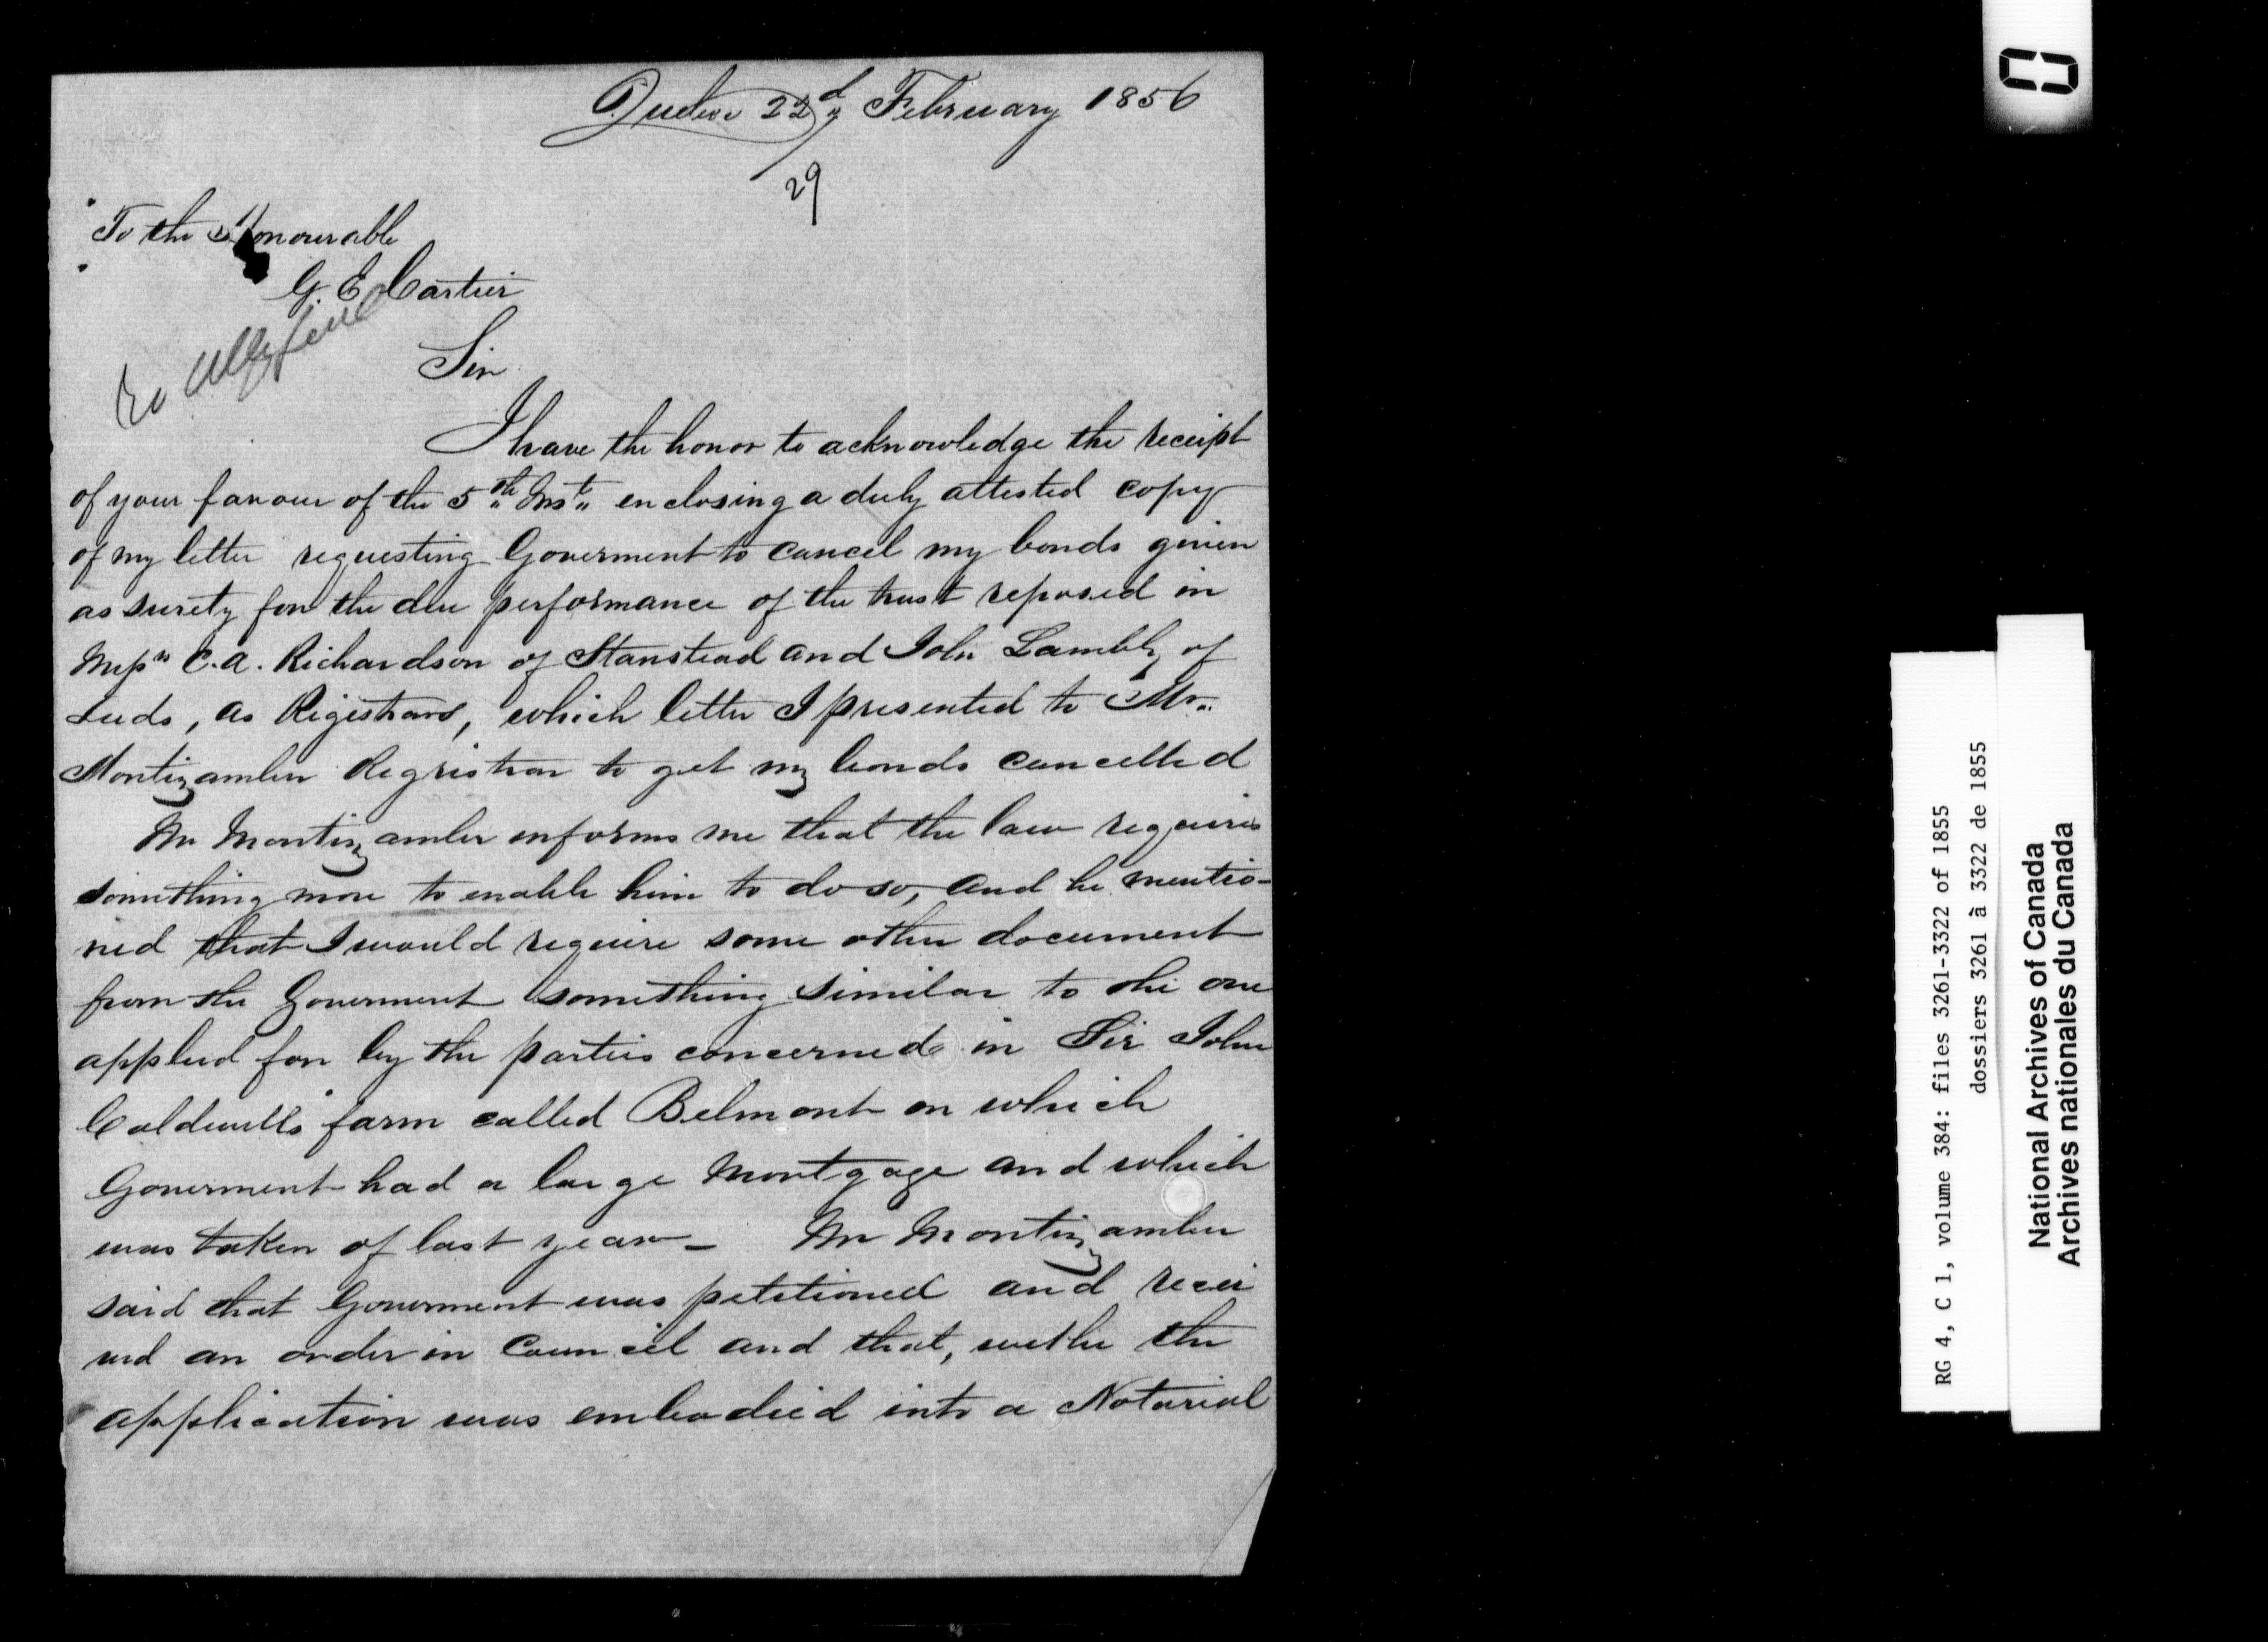 Quebec 22d February 1856
29
To the Honourable
G. E. Cartier
Sir
I have the honor to acknowledge the receipt
of your favour of the 5th Inst enclosing a duly attested copy
of my letter requesting Goverment to cancel my bonds given
as surety for the due performance of the trust reposed in
Messrs C. A. Richardson of Stanstead and John Lambly of
Leeds, as Registrars, which letter I presented to Mr.
Montizamber Regristrar to get my bonds cancelled
Mr Montizamber informs me that the law requires
something more to enable him to do so, and he mentio-
ned that I would require some other document
from the Goverment something similar to the one
applied for by the parties concerned in Sir John
Caldwell's farm called Belmont on which
Goverment had a large Mortgage and which
was taken of last year — Mr Montizamber
said that Goverment was petitioned and recei
ved an order in Council and that, withe the
application was embodied into a Notarial
RG 4, C 1, volume 384: files 3261-3322 of 1855
dossiers 3261 à 3322 de 1855
National Archives of Canada
Archives nationales du Canada